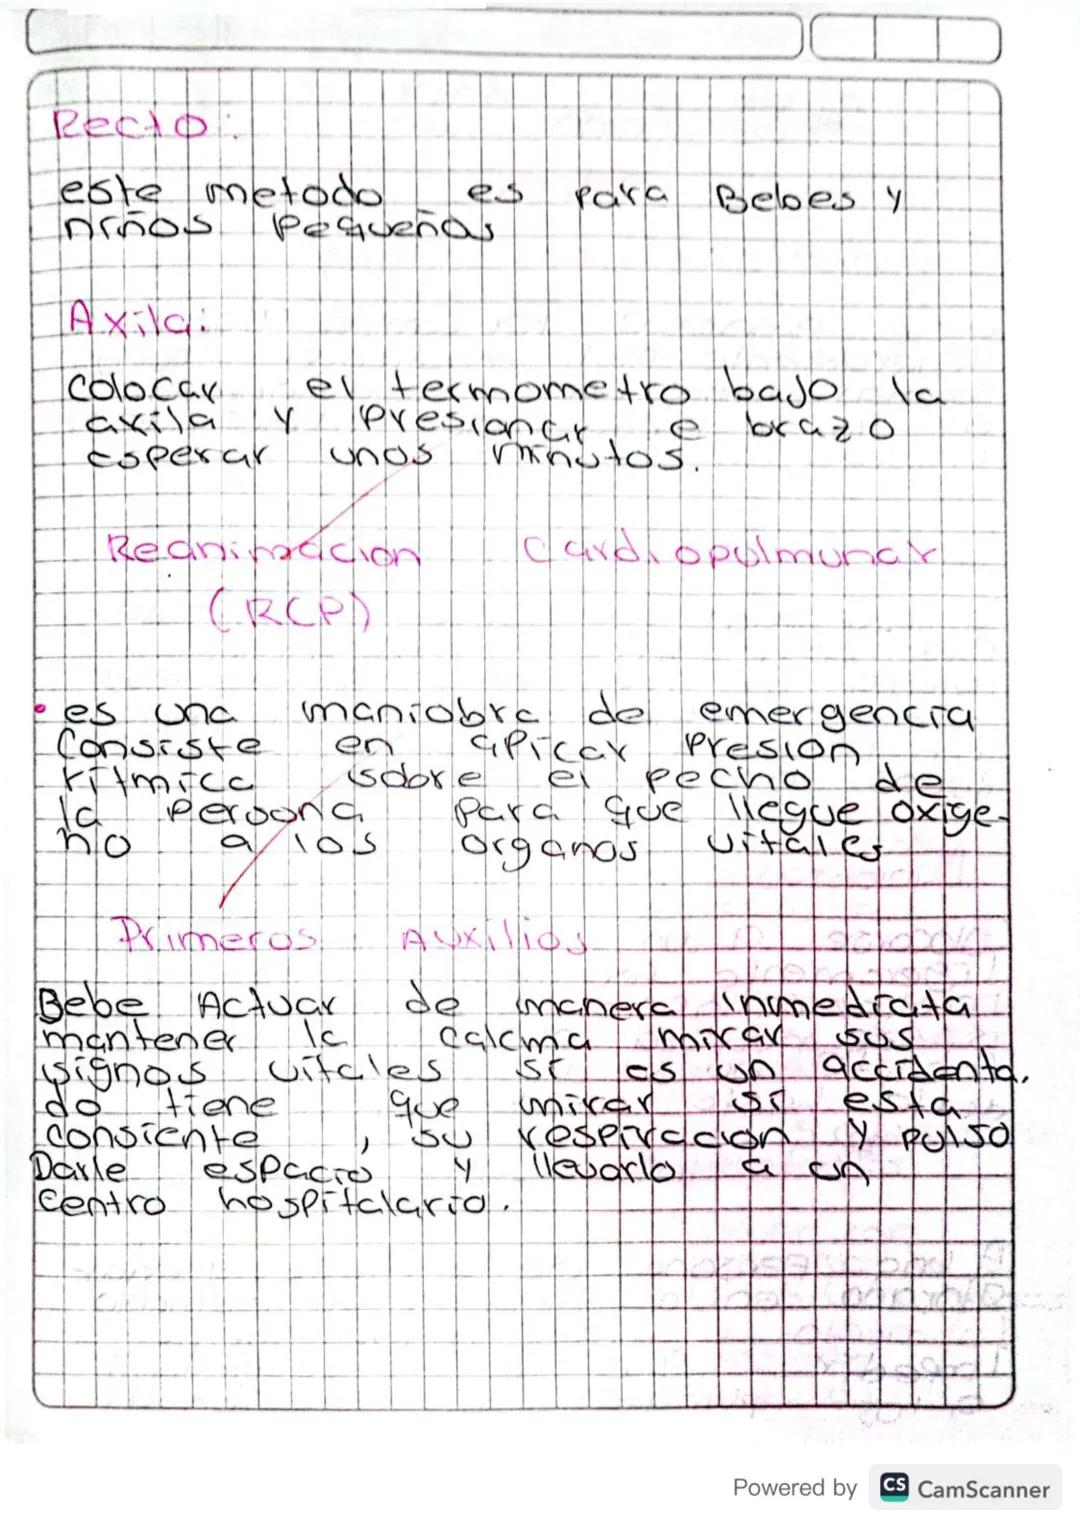 Recto:
este metodo es para Bebes y
niños Pequeños
Axila:
colocar el termometro bajo la
axila y presionar e brazo
esperar unos minutos.
Reanimacion Cardiopulmunar
(RCP)
• es una maniobra de emergencia
Consiste en apicar presion
ritmica sobre el pecho de
la persona para que llegue oxige-
no a los organos vitales
Primeros Auxilios
Bebe Actuar de manera inmediata
mantener la calama mirar sus
signos vitales si es un accidenta.
do tiene que mirar si esta
consiente, su respiracion y pulso
Darle espacio y llevarlo a un
centro hospitalario.
Powered by CS CamScanner